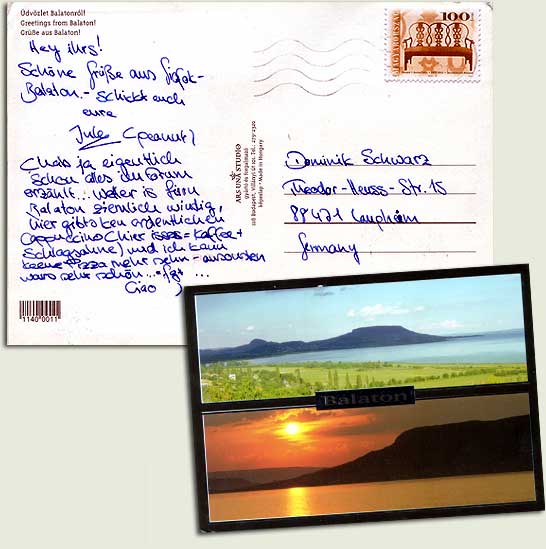 Üdvözlet Balatonról!
Greetings from Balaton!
Grüße aus Balaton!
Hey ihrs!
Schöne Grüße aus Siofok-
Balaton. - Schickt euch
eure
Jule (peanut)
Habs ja eigentlich
schon alles im Forum
erzählt... Wetter is fürn
Balaton ziemlich windig,
hier gibts kein ordentlichen
Cappuccino (hier isses = Kaffee +
Schlagsahne) und ich kann
keene Pizza mehr sehn - ansonsten
wars sehr schön...
Ciao
11400011
ARS UNA STUDIO
gyártó és forgalmazó
Budapest, Villányi út
képeslap * Made in Hungary
MAGYARORSZÁG
100
Dominik Schwarz
Theodor-Heuss-Str. 15
88471 Laupheim
Germany
Balaton